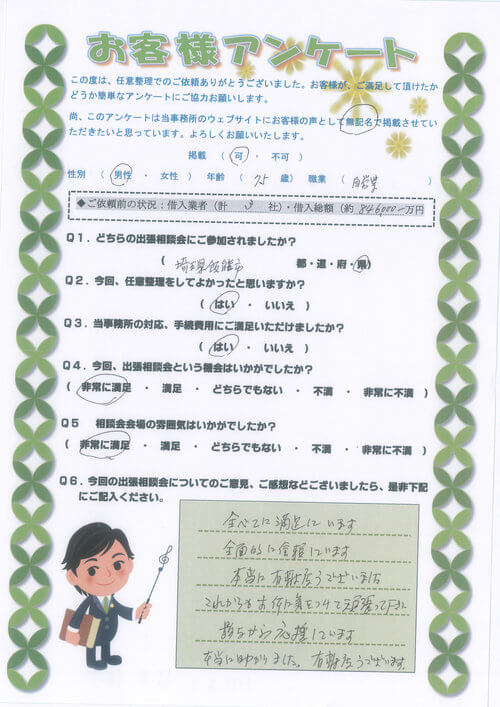 お客様アンケート
この度は、任意整理でのご依頼ありがとうございました。お客様が、ご満足して頂けたか
どうか簡単なアンケートにご協力お願いします。
尚、このアンケートは当事務所のウェブサイトにお客様の声として無記名で掲載させてい
ただきたいと思っています。よろしくお願いいたします。
掲載 ( 可 ・ 不可 )
性別 ( 男性 ・ 女性 ) 年齢 ( 75 歳) 職業 ( 自営業 )
◆ご依頼前の状況:借入業者(計 3 社)・借入総額(約 846,000 万円
Q1.どちらの出張相談会にご参加されましたか?
( 埼玉県飯能市 都・道・府・県)
Q2.今回、任意整理をしてよかったと思いますか?
( はい ・ いいえ )
Q3.当事務所の対応、手続費用にご満足いただけましたか?
( はい ・ いいえ )
Q4.今回、出張相談会という機会はいかがでしたか?
( 非常に満足 ・ 満足 ・ どちらでもない ・ 不満 ・ 非常に不満 )
Q5 相談会会場の雰囲気はいかがでしたか?
( 非常に満足 ・ 満足 ・ どちらでもない ・ 不満 ・ 非常に不満 )
Q6.今回の出張相談会についてのご意見、ご感想などございましたら、是非下記
にご記入ください。
全べてに満足ています
全面的に信頼ています
本当に有難うございました
これからもお体に気をつけて頑張って下さい
応援しています
本当に助かりました。有難うございます。